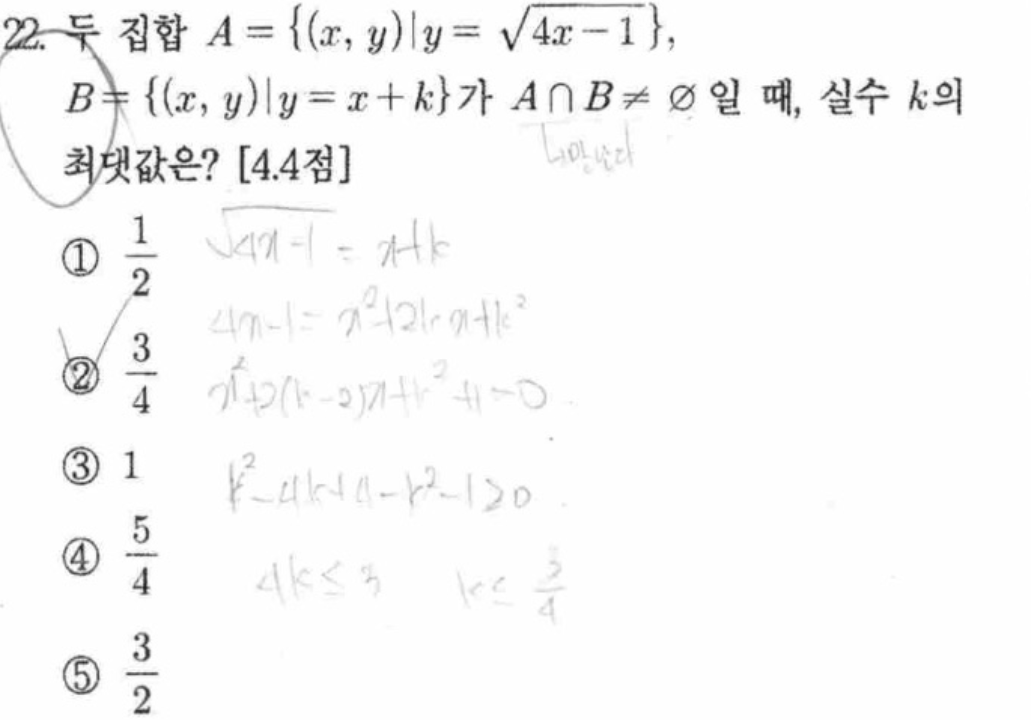 22. 두 집합 A = {(x, y)|y = √(4x-1)},
B = {(x, y)|y = x + k}가 A∩B ≠ ∅일 때, 실수 k의
↳만난다
최댓값은? [4.4점]
① 1/2
② 3/4
③ 1
④ 5/4
⑤ 3/2
√(4x-1) = x+k
4x-1 = x²+2kx+k²
x²+2(k-2)x+k²+1=0
k²-4k+4-k²-1≥0
4k≤3 k≤3/4